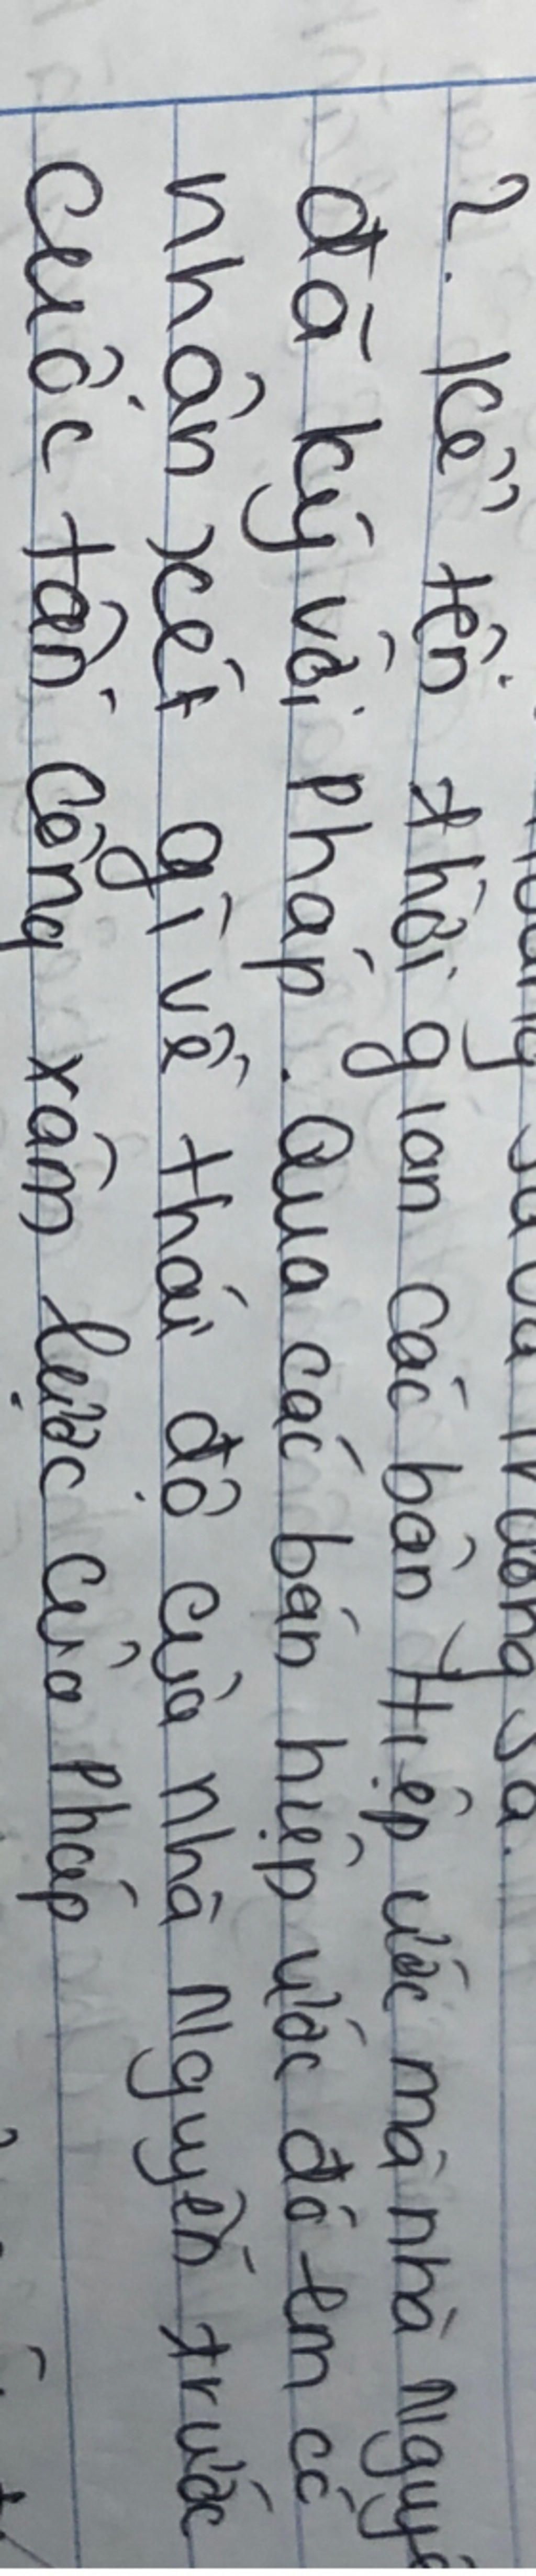 2. Kể tên thời gian các bản Hiệp ước mà nhà Nguyễ
đã ký với Pháp. Qua các bản hiệp ước đó em có
nhận xét gì về thái độ của nhà Nguyễn trước
cuộc tấn công xâm lược của Pháp